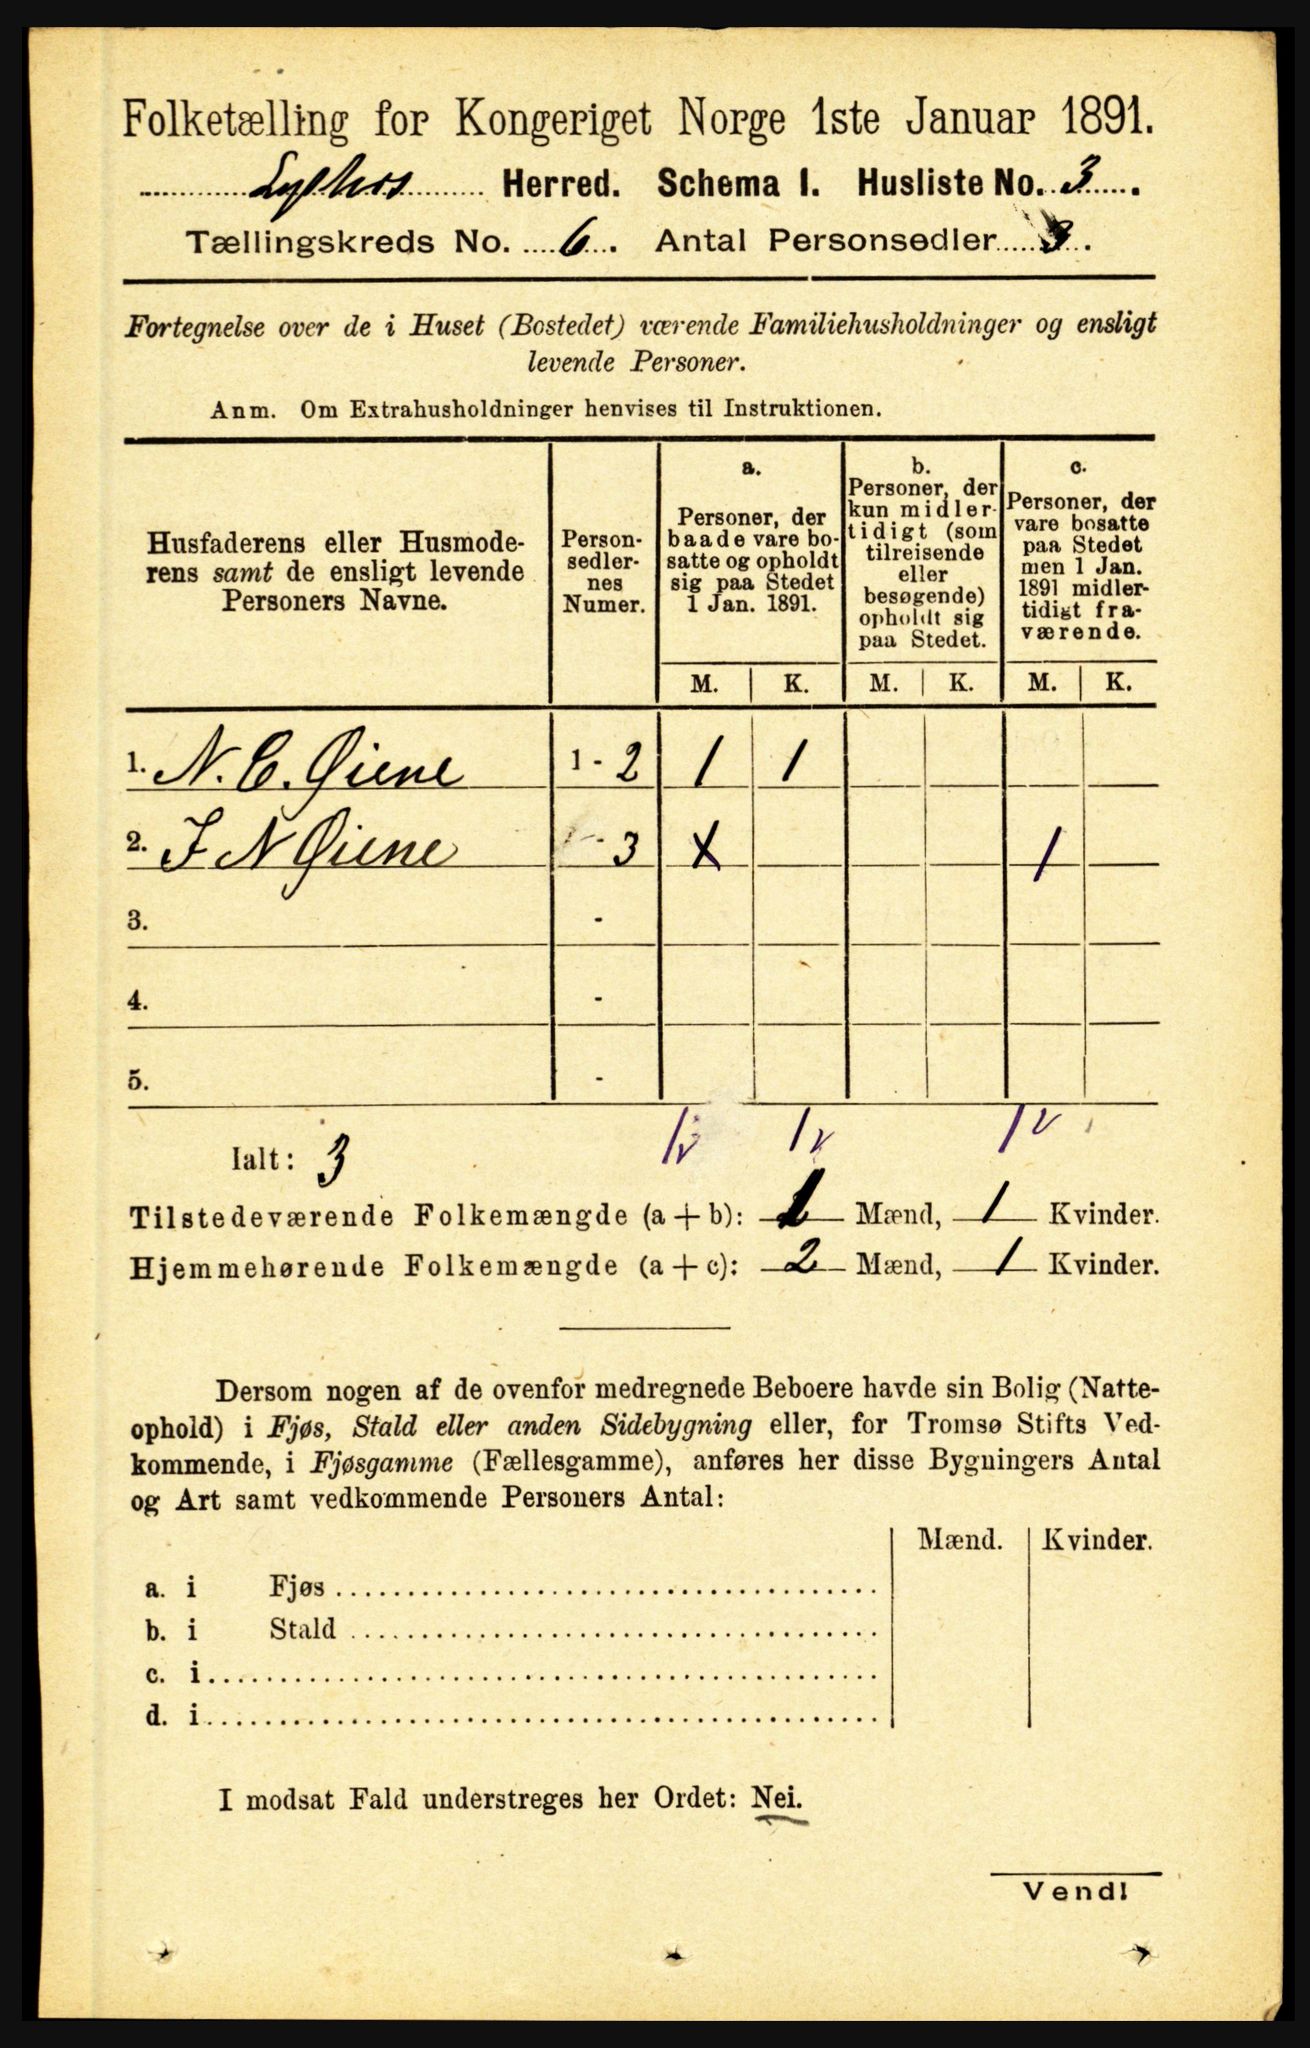 Folketælling for Kongeriget Norge 1ste Januar 1891.
Herred. Schema I. Husliste No. 3.
Tællingskreds No. 6. Antal Personsedler 3.
Fortegnelse over de i Huset (Bostedet) værende Familiehusholdninger og ensligt
levende Personer.
Anm. Om Extrahusholdninger henvises til Instruktionen.
Husfaderens eller Husmode-
rens samt de ensligt levende
Personers Navne.
Person-
sedler-
nes
Numer.
a.
Personer, der
baade vare bo-
satte og opholdt
sig paa Stedet
1 Jan. 1891.
b.
Personer, der
kun midler-
tidigt (som
tilreisende
eller
besøgende)
opholdt sig
paa Stedet.
c.
Personer, der
vare bosatte
paa Stedet
men 1 Jan.
1891 midler-
tidigt fra-
værende.
M. K. M. K. M. K.
1. N. C. Øiene 1 - 2 1 1
2. I N Øiene - 3 X 1
3. -
4. -
5. -
1v 1v 1v
Ialt: 3
Tilstedeværende Folkemængde (a + b): 1 Mænd, 1 Kvinder.
Hjemmehørende Folkemængde (a + c): 2 Mænd, 1 Kvinder.
Dersom nogen af de ovenfor medregnede Beboere havde sin Bolig (Natte-
ophold) i Fjøs, Stald eller anden Sidebygning eller, for Tromsø Stifts Ved-
kommende, i Fjøsgamme (Fællesgamme), anføres her disse Bygningers Antal
og Art samt vedkommende Personers Antal:
Mænd. Kvinder.
a. i Fjøs
b. i Stald
c. i
d. i
I modsat Fald understreges her Ordet: Nei.
Vend!